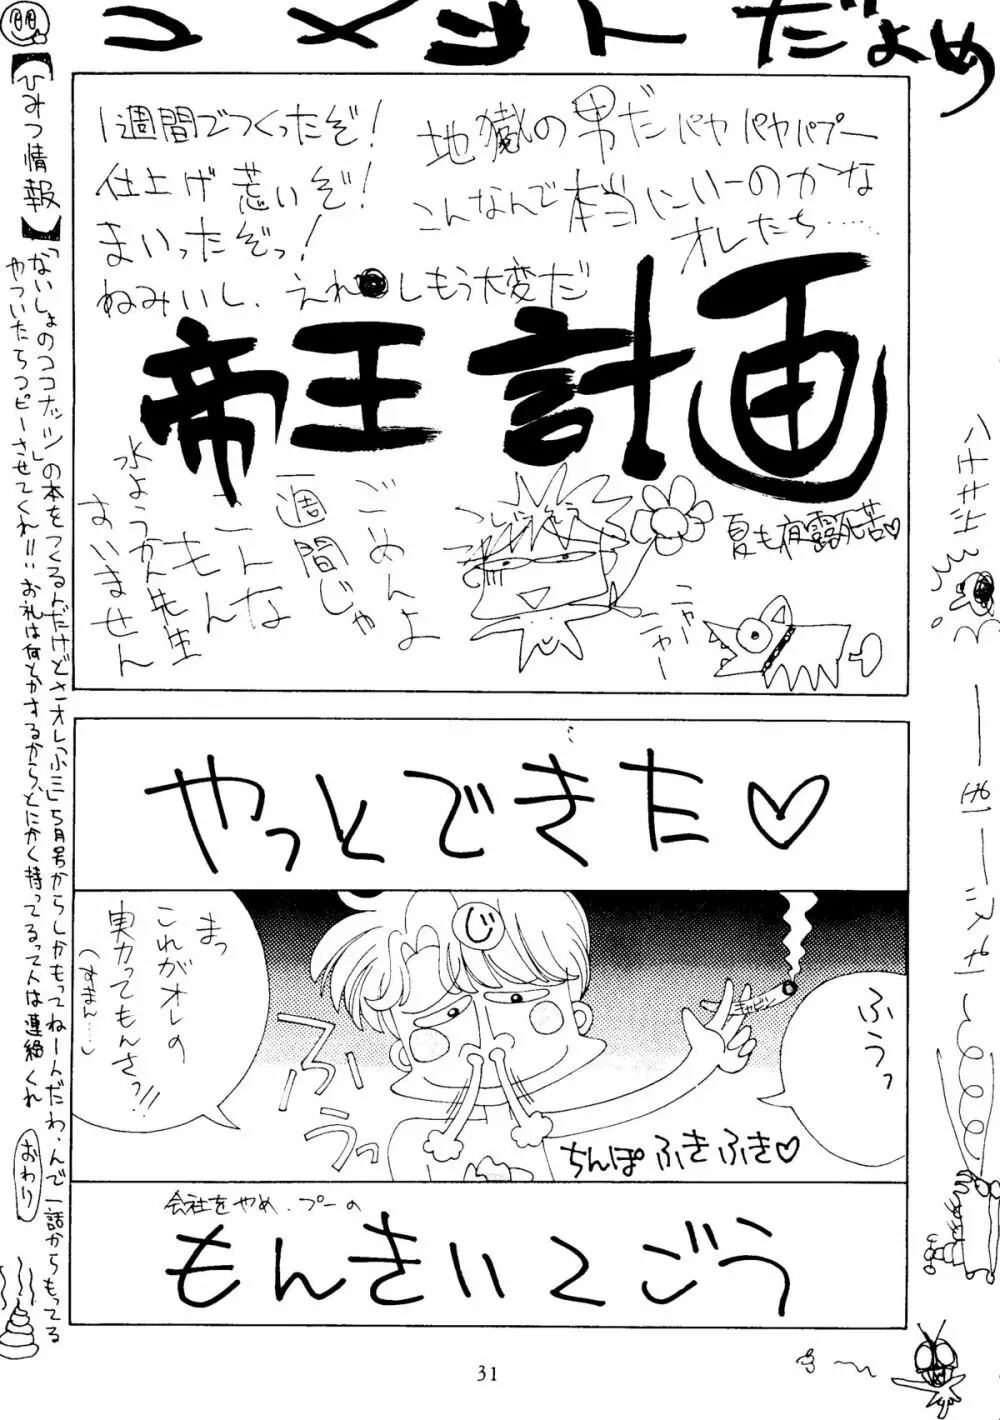 コメントだよめ
【ひみつ情報】
「ないしょのココナッツ」の本をつくるんだけどさオレ「小三」5月号からしかもってねーんだわ、んで一話からもってる
やついたらコピーさせてくれ!!お礼は何とかするから、とにかく持ってるって人は連絡くれ
おわり
1週間でつくったぞ!
仕上げ荒いぞ!
まいったぞっ!
ねみいし、えれーしもう大変だ
地獄の男だパヤパヤパプー
こんなんで本当にいーのかな
オレたち……
帝王計画
ごめんよ
一週間じゃ
こんな
もん
水ようかん先生
すいません
夏も夜露死苦♡
ニャー
ニャー
やっとできた♡
まっ
これがオレの
実力ってもんさっ!!
(すまん…)
じ
ふうっ
キャビン
ふうっ
ちんぽふきふき♡
会社をやめ、プーの
もんきいくごう
31